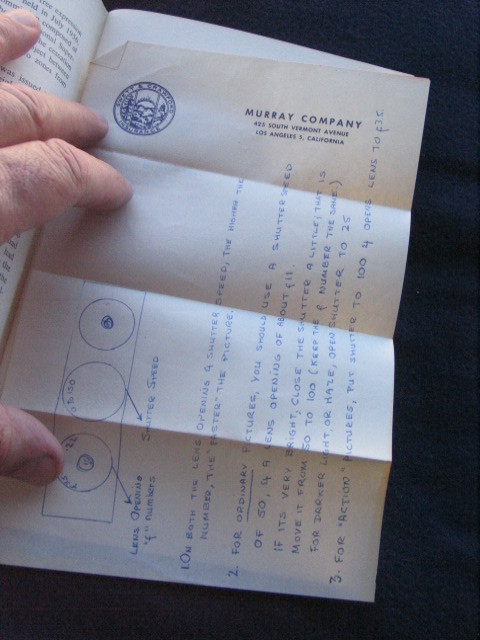 MURRAY COMPANY
455 SOUTH VERMONT AVENUE
LOS ANGELES 5, CALIFORNIA
3.5 22
25 to 100
LENS OPENING
"f" numbers
SHUTTER SPEED
1. ON BOTH THE LENS OPENING & SHUTTER SPEED, THE HIGHER THE
NUMBER, THE "FASTER" THE PICTURE.
2. FOR ORDINARY PICTURES, YOU SHOULD USE A SHUTTER SPEED
OF 50, & A LENS OPENING OF ABOUT f11.
IF ITS VERY BRIGHT, CLOSE THE SHUTTER A LITTLE; THAT IS
MOVE IT FROM 50 TO 100 (KEEP THE f NUMBER THE SAME.)
FOR DARKER LIGHT, OR HAZE, OPEN SHUTTER TO 25
3. FOR "ACTION" PICTURES, PUT SHUTTER TO 100 & OPEN LENS TO f3.5.
free expression
held in July 1956,
was issued